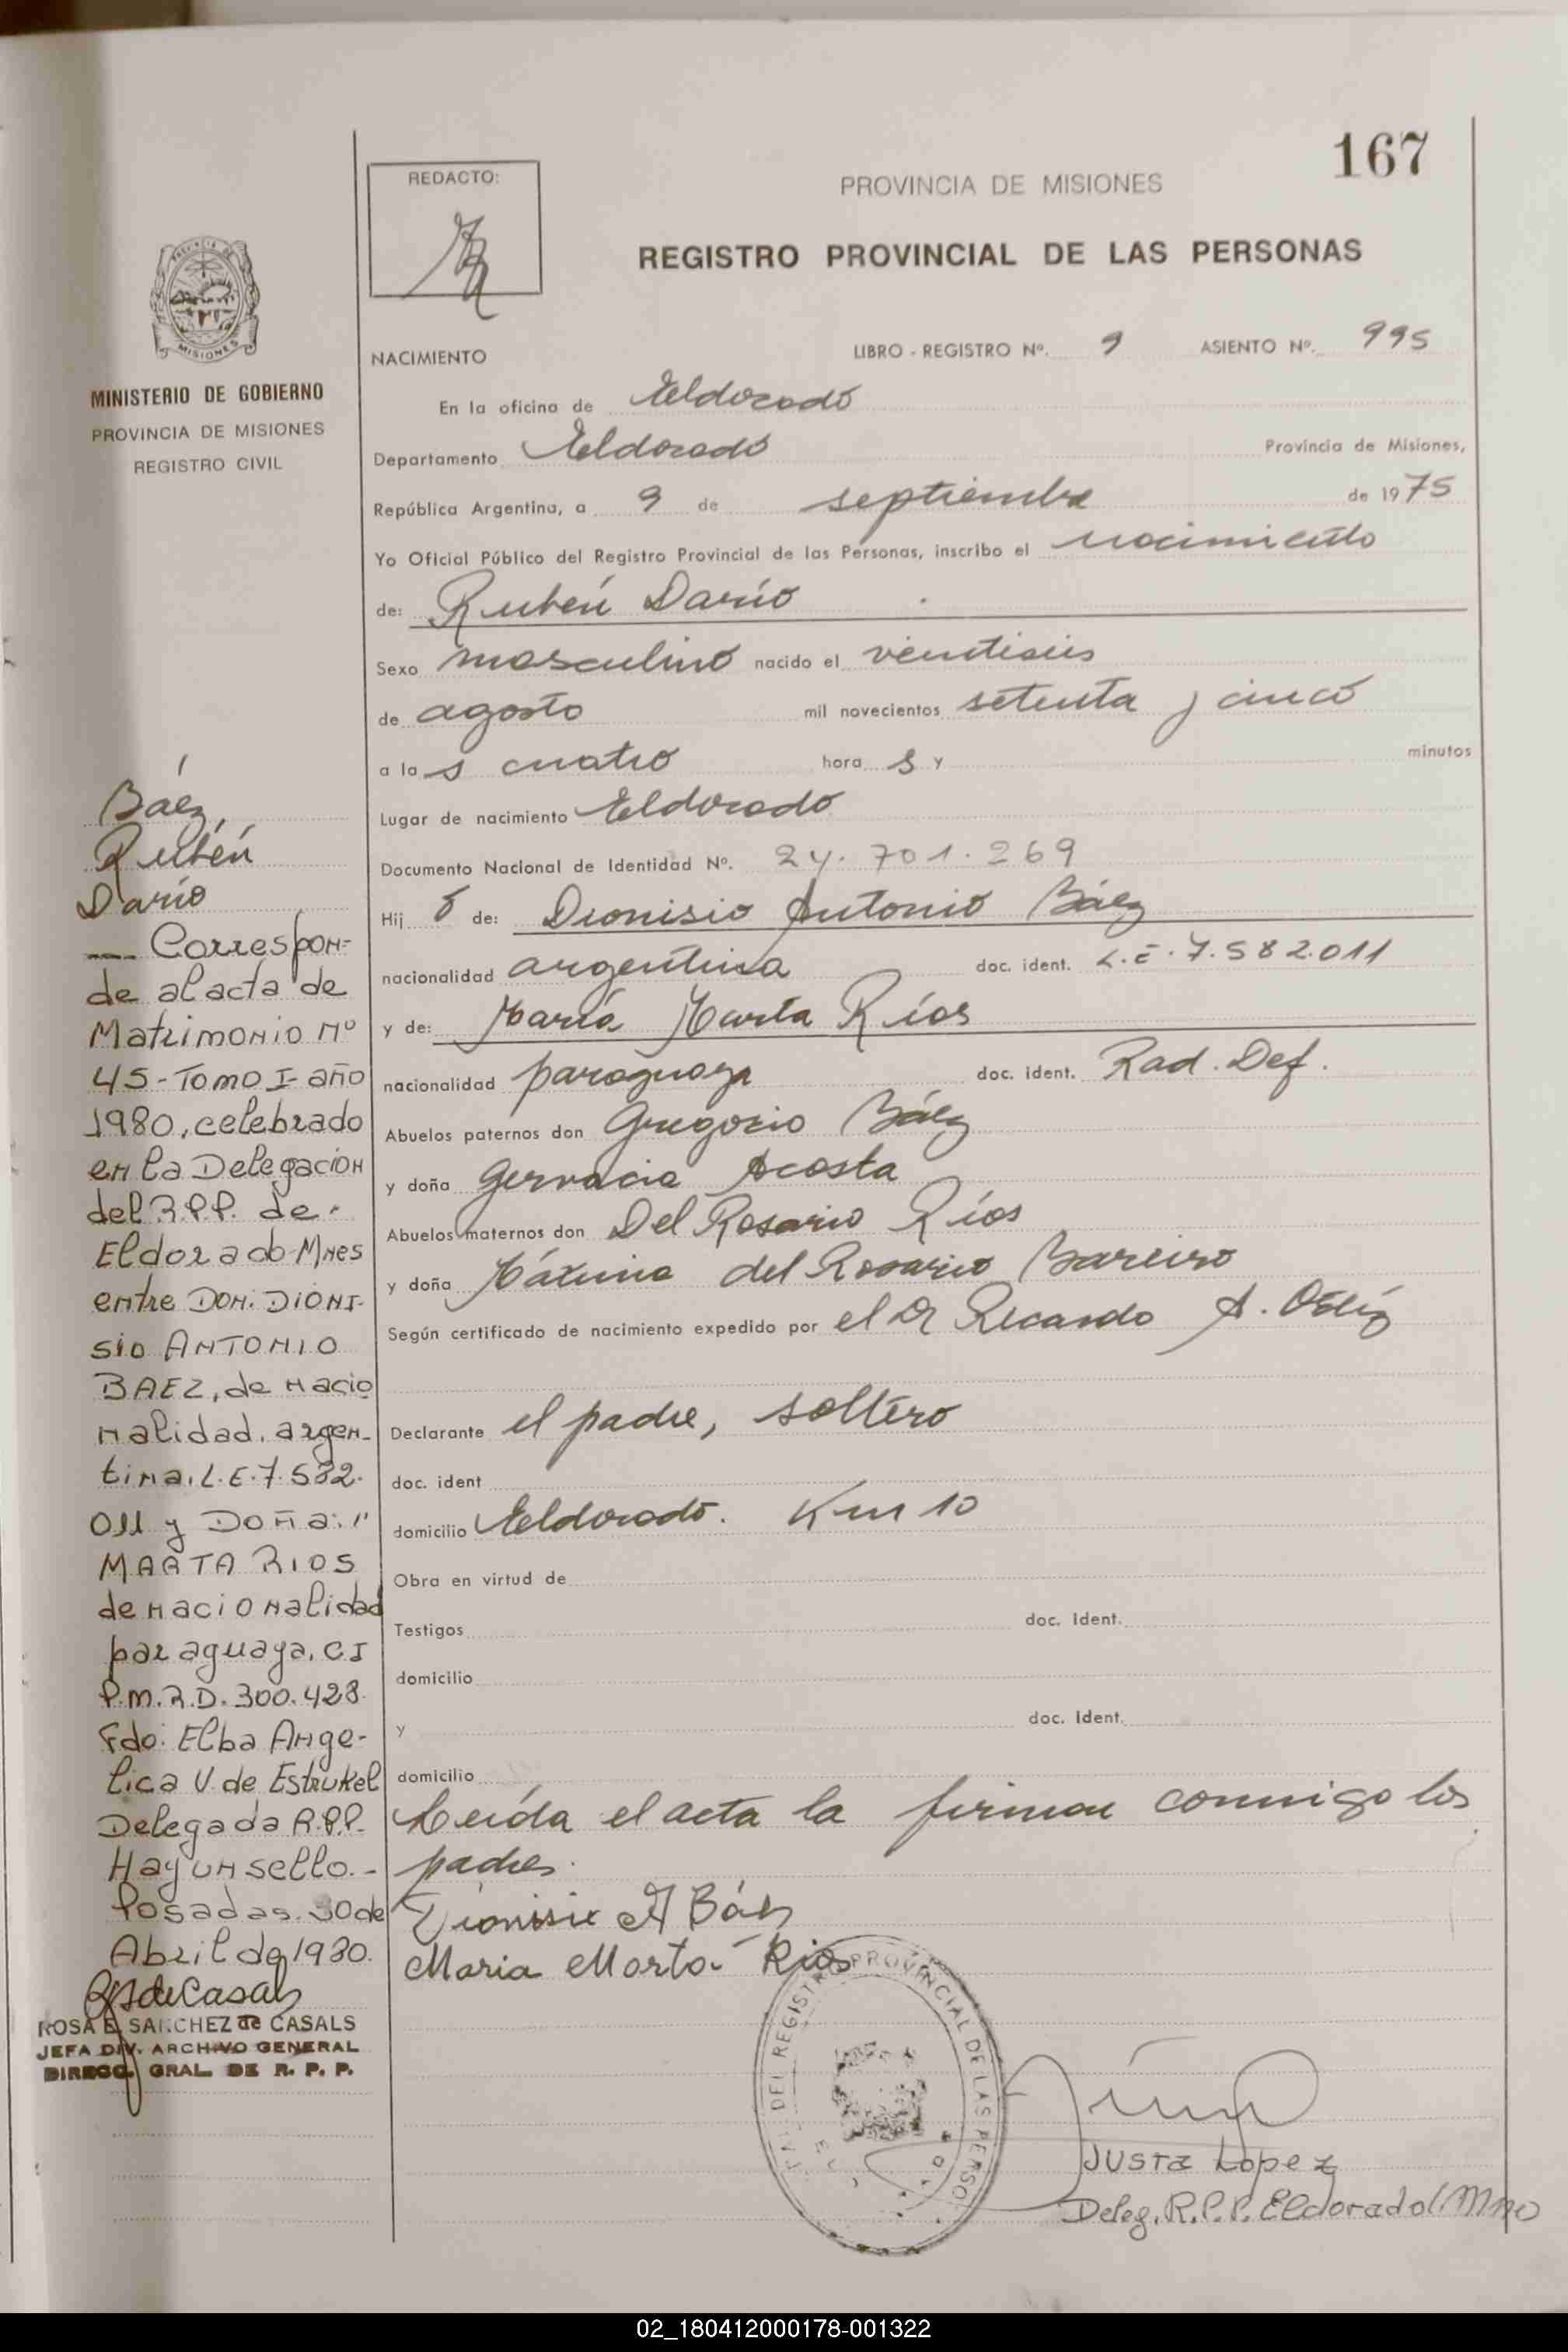 167
REDACTO:
PROVINCIA DE MISIONES
REGISTRO PROVINCIAL DE LAS PERSONAS
MISIONES
MINISTERIO DE GOBIERNO
PROVINCIA DE MISIONES
REGISTRO CIVIL
NACIMIENTO LIBRO - REGISTRO Nº. 9 ASIENTO Nº. 995
En la oficina de Eldorado
Departamento Eldorado Provincia de Misiones,
República Argentina, a 9 de septiembre de 1975
Yo Oficial Público del Registro Provincial de las Personas, inscribo el nacimiento
de: Rubén Darío
Sexo masculino nacido el veintiseis
de agosto mil novecientos setenta y cinco
a las cuatro horas y minutos
Lugar de nacimiento Eldorado
Documento Nacional de Identidad Nº. 24.701.269
Hijo de: Dionisio Antonio Báez
nacionalidad argentina doc. ident. L.E. 7.582.011
y de: María Marta Ríos
nacionalidad paraguaya doc. ident. Rad. Def.
Abuelos paternos don Gregorio Báez
y doña Gervacia Acosta
Abuelos maternos don Del Rosario Ríos
y doña Máxima del Rosario Bareiro
Según certificado de nacimiento expedido por el Dr Ricardo A. Ortíz
Declarante el padre, soltero
doc. ident
domicilio Eldorado. Km 10
Obra en virtud de
Testigos doc. Ident.
domicilio
y doc. Ident.
domicilio
Leída el acta la firman conmigo los
padres.
Dionisio A Báez
Maria Marta Rios
REGISTRO PROVINCIAL DE LAS PERSO
Justa Lopez
Deleg. R.P.P. Eldorado (Mnes)
Báez,
Rubén
Darío
— Correspon=
de al acta de
Matrimonio Nº
45-Tomo I-año
1980, celebrado
en la Delegación
del R.P.P. de
Eldorado-Mnes
entre DON: DIONI-
SIO ANTONIO
BAEZ, de nacio
nalidad argen-
tina. L.E. 7.582.
011 y DOÑA:"
MARTA RIOS
de nacionalidad
paraguaya, CI
P.M.R.D. 300.428.
Fdo: Elba Ange-
lica V. de Estrukel
Delegada R.P.P.
Hay un sello.-
Posadas. 30 de
Abril de 1980.
RSdeCasals
ROSA E. SANCHEZ de CASALS
JEFA DIV. ARCHIVO GENERAL
DIRECC. GRAL. DE R. P. P.
02_180412000178-001322